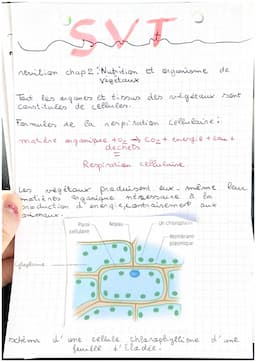 SVT
révision chap 2 : Nutrition et organisme de
végétaux
Tout les organes et tissus des végétaux sont
constitués de cellules.
Formules de la respiration cellulaire :
matière organique + O₂ → CO₂ + énergie + eau +
déchets
=
Respiration cellulaire
Les végétaux produisent eux-même leur
matières organique nécessaire à la
production d'énergie, contrairement aux
animaux.
Paroi
cellulaire
Noyau
Un chloroplaste
Membrane
plasmique
Cytoplasme
schéma d'une cellule chlorophyllienne d'une
feuille d'Elodée.